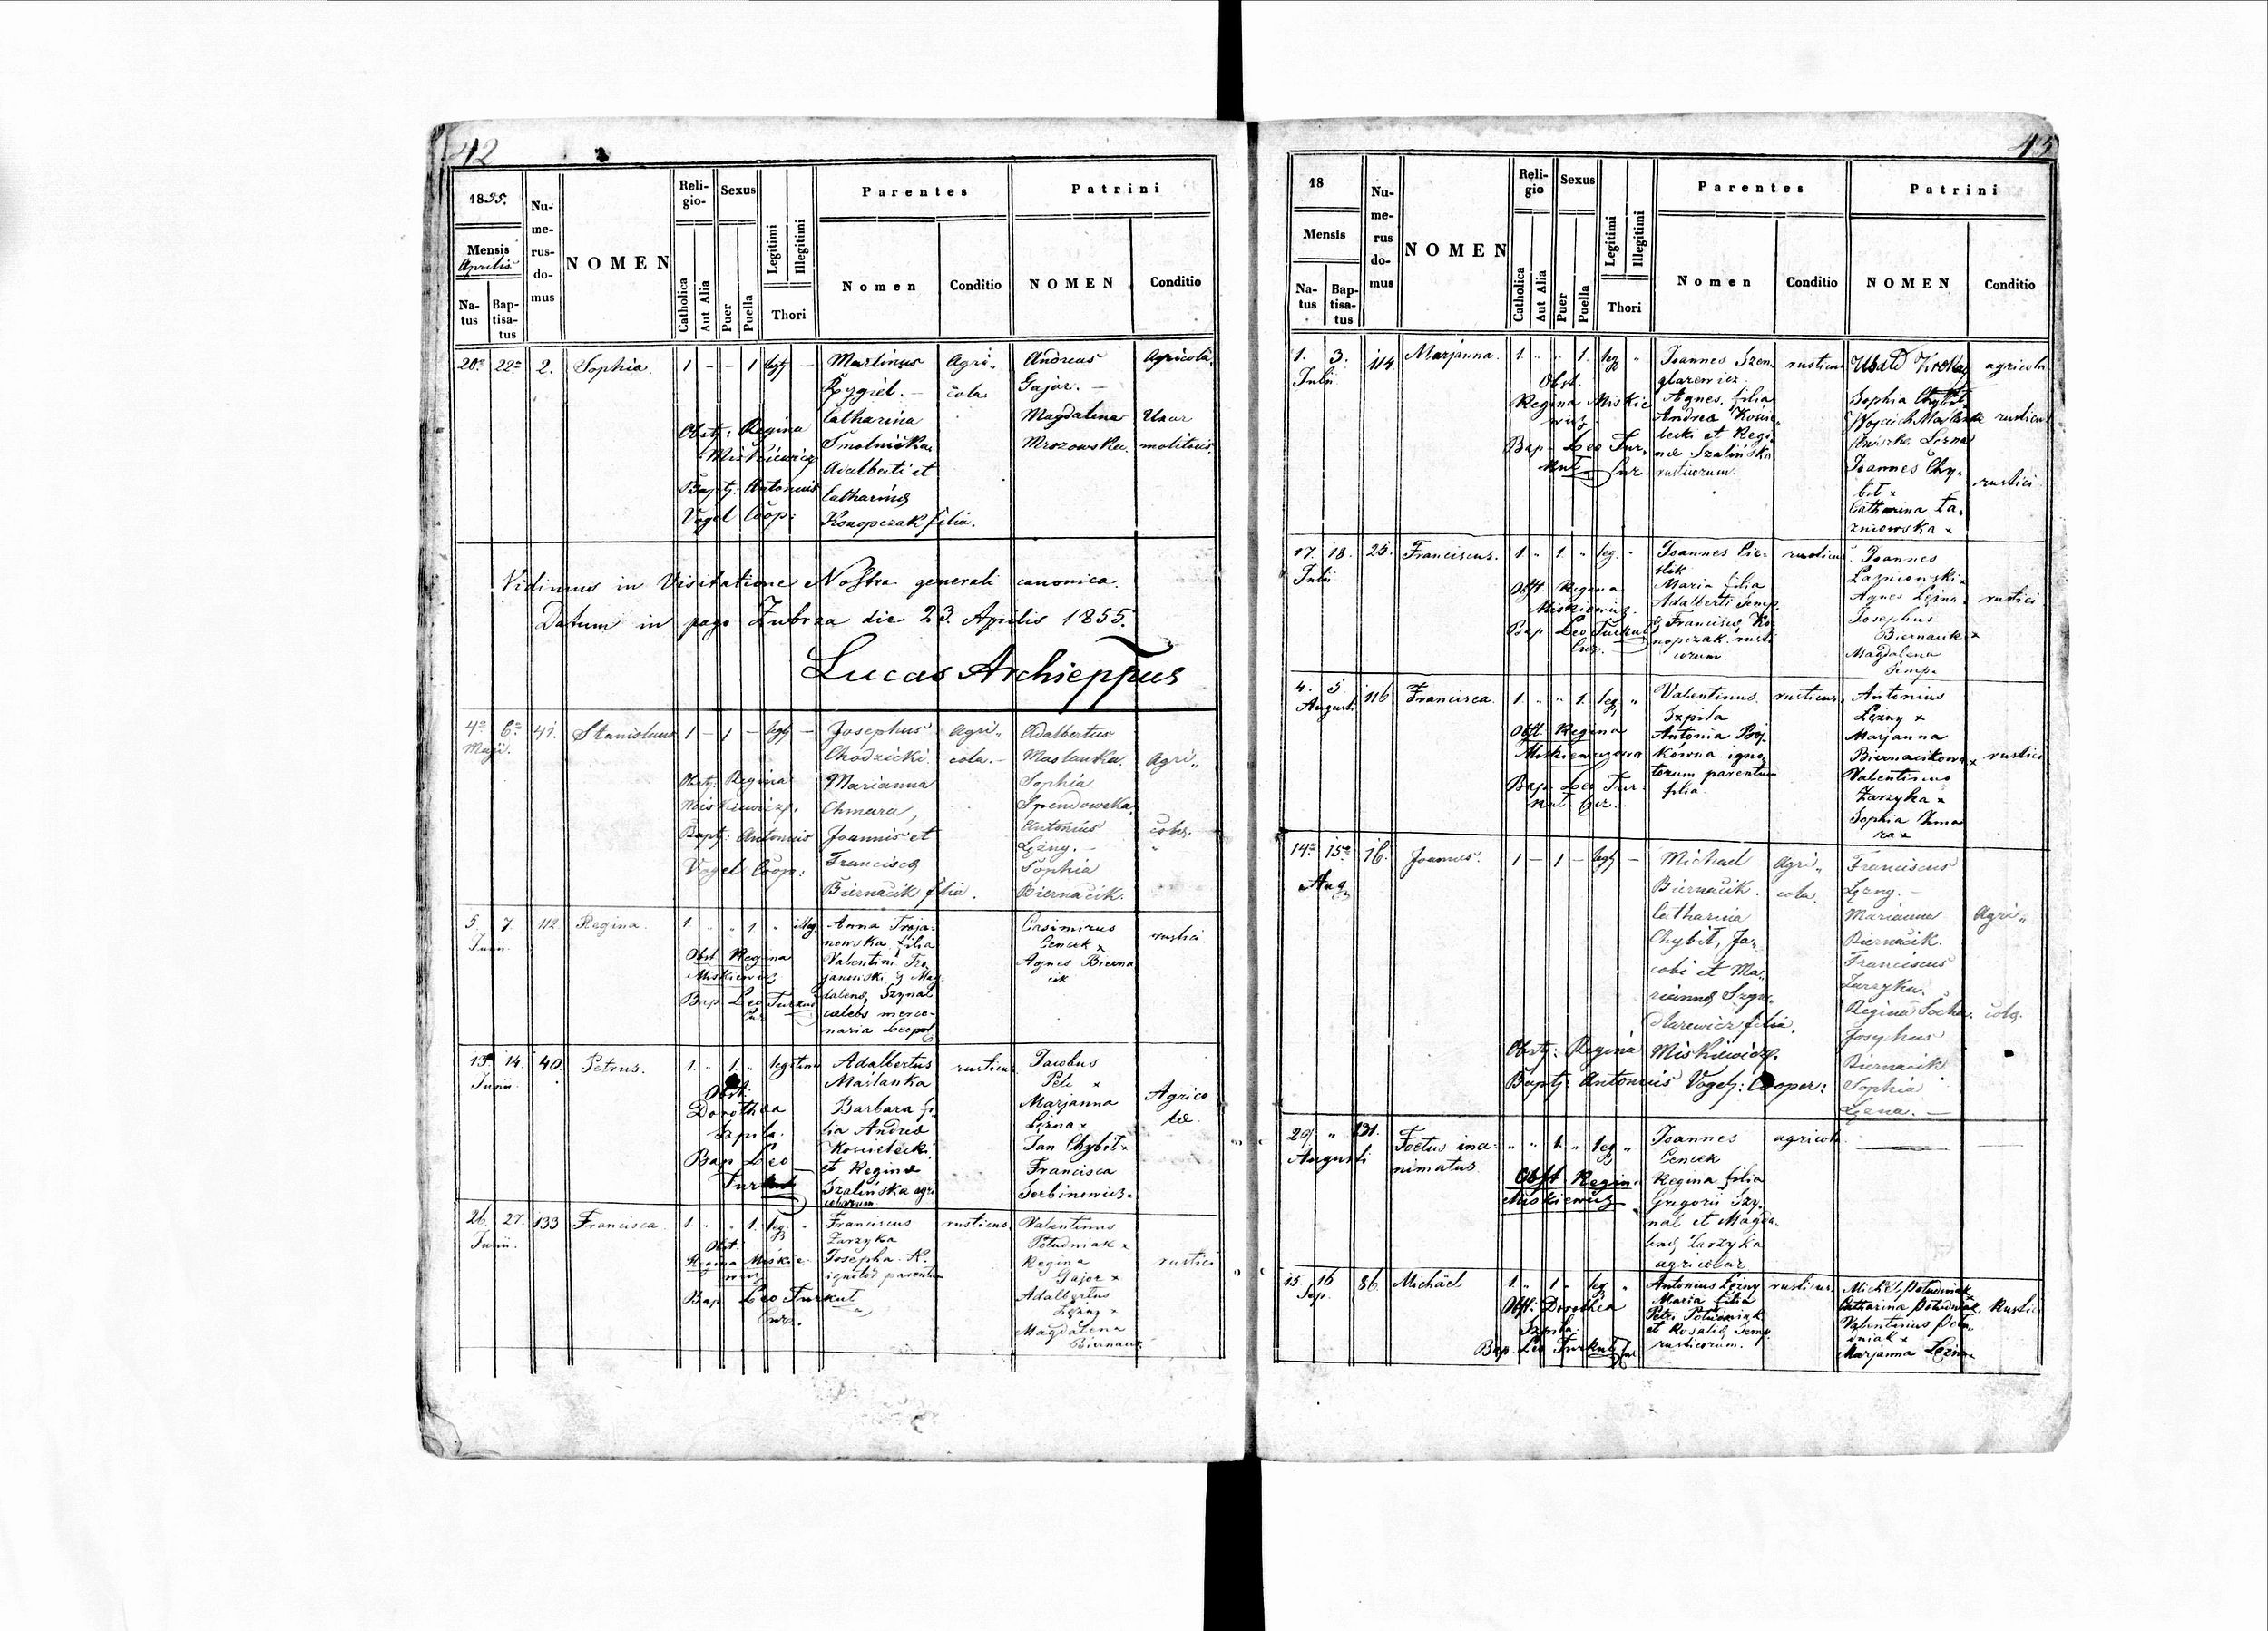 42
1855.
Mensis
Aprilis
Na-
tus
Bap-
tisa-
tus
Nu-
me-
rus-
do-
mus
NOMEN
Reli-
gio-
Catholica
Aut Alia
Sexus
Puer
Puella
Legitimi
Illegitimi
Thori
Parentes
Nomen
Conditio
Patrini
NOMEN
Conditio
20a 22a 2. Sophia. 1 - - 1 legt -
Martinus
Rygiel. -
Catharina
Smolnicka
Adalberti et
Catharinæ
Konopczak filia.
Agri„
cola.
Andreas
Gajor. -
Magdalena
Mrozowska.
Agricola
Uxor
molitoris.
Obst: Regina
Miskiewicz
Bapt: Antonius
Vogel Coop:
Vidimus in Visitatione Nostra generali canonica.
Datum in pago Zubrza die 23. Aprilis 1855.
Lucas Archieppus
4a 6a 41. Stanislaus 1 - 1 - legt -
Maji.
Josephus
Chodzicki.
Marianna
Chmara,
Joannis et
Franciscæ
Biernacik filia.
Agri„
cola. -
Adalbertus
Maslanka.
Sophia
Spendowska
Antonius
Lęzny. -
Sophia
Biernacik.
Agri„
colæ.
Obst: Regina
Miskiewicz.
Bapt: Antonius
Vogel Coop:
5. 7. 112. Regina. 1 „ „ 1 „ illeg.
Junii.
Anna Troja-
nowska filia
Valentini Tro-
janowski & Mag-
dalenæ Szynal
cælebs merce-
naria Leopol
Casimirus
Cencek x
Agnes Bierna
cik
rustici.
Obst Regina
Miskiewicz
Bap Leo Turkuł
Cur
13. 14. 40. Petrus. 1. „ 1. „ legitimi
Junii.
Adalbertus
Maślanka
Barbara fi-
lia Andreæ
Kościelecki
et Reginæ
Szalińska agri
colarum
rusticus.
Jacobus
Pele x
Marjanna
Lęzna x
Jan Chybit x
Francisca
Serbinowicz.
Agrico
læ.
Obst.
Dorothea
Szpila.
Bap Leo
Turkuł
26. 27. 133 Francisca. 1. „ „ 1. leg. „
Junii.
Franciscus
Zarzyka
Josepha N.
ignotor parentum
rusticus.
Valentinus
Południak x
Regina
Gajor x
Adalbertus
Lęzny x
Magdalena
Biernacik
rustici
Obst.
Regina Miskie-
wicz
Bap Leo Turkuł
Cur.
45
18
Mensis
Na-
tus
Bap-
tisa-
tus
Nu-
me-
rus
do-
mus
NOMEN
Reli-
gio
Catholica
Aut Alia
Sexus
Puer
Puella
Legitimi
Illegitimi
Thori
Parentes
Nomen
Conditio
Patrini
NOMEN
Conditio
1. 3. 114 Marjanna. 1. „ „ 1. leg „
Julii
Joannes Szen-
glarewicz.
Agnes, filia
Andreæ Koście-
lecki et Regi-
næ Szalińska
rusticorum.
rusticus
Sophia Chybit
Wojciech Maslanka
Lezna
Joannes Chy-
bit x
Catharina Ła-
zniowska x
agricola
rusticus
rustici
Obst.
Regina Miskie
wicz
Bap Leo Tur-
kuł Cur.
17. 18. 25. Franciscus. 1. „ 1. „ leg. „
Julii
Joannes Cie-
slik
Maria filia
Adalberti Semp.
& Franciscæ Ko-
nopczak. rusti
corum.
rusticus.
Joannes
Łazniowski x
Agnes Lęzna.
Josephus
Biernacik x
Magdalena
Semp.
rustici
Obst. Regina
Miskiewicz.
Bap Leo Turkuł
Cur.
4. 5. 116 Francisca. 1. „ „ 1. leg „
Augusti
Valentinus
Szpila
Antonia Boj-
kówna igno-
torum parentum
filia.
rusticus.
Antonius
Lęzny x
Marjanna
Biernacikowa x
Valentinus
Zarzyka x
Sophia Chma
ra x
rustici
Obst. Regina
Miskiewiczowa
Bap Leo Tur-
kuł Cur.
14a 15a 76. Joannes. 1 - 1 - legt -
Aug
Michael
Biernacik.
Catharina
Chybit, Ja-
cobi et Ma-
riannæ Szyn-
dlarewicz filia.
Agri„
cola.
Franciscus
Lęzny. -
Marianna
Biernacik.
Franciscus
Zarzyka.
Regina Socha.
Josephus
Biernacik
Sophia
Lęzna. -
Agri„
colæ.
Obst: Regina Miskiewicz.
Bapt: Antonius Vogel: Cooper:
29 „ 131. Foetus ina- „ „ 1. „ leg „
Augusti nimatus
Joannes
Cencek
Regina filia
Gregorii Szy-
nal et Magda-
lenæ Zarzyka
agricolar
agricola
Obst Regina
Miskiewicz
15. 16 86. Michäel 1. „ 1 „ leg „
Sep.
Antonius Lęzny
Maria filia
Petri Południak
et Rosaliæ Semp.
rusticorum.
rusticus.
Michäel Południak
Catharina Południak
Valentinus Połu-
dniak x
Marjanna Lęzna
Rustici
Obst: Dorothea
Szpila.
Bap. Leo Turkuł Cur